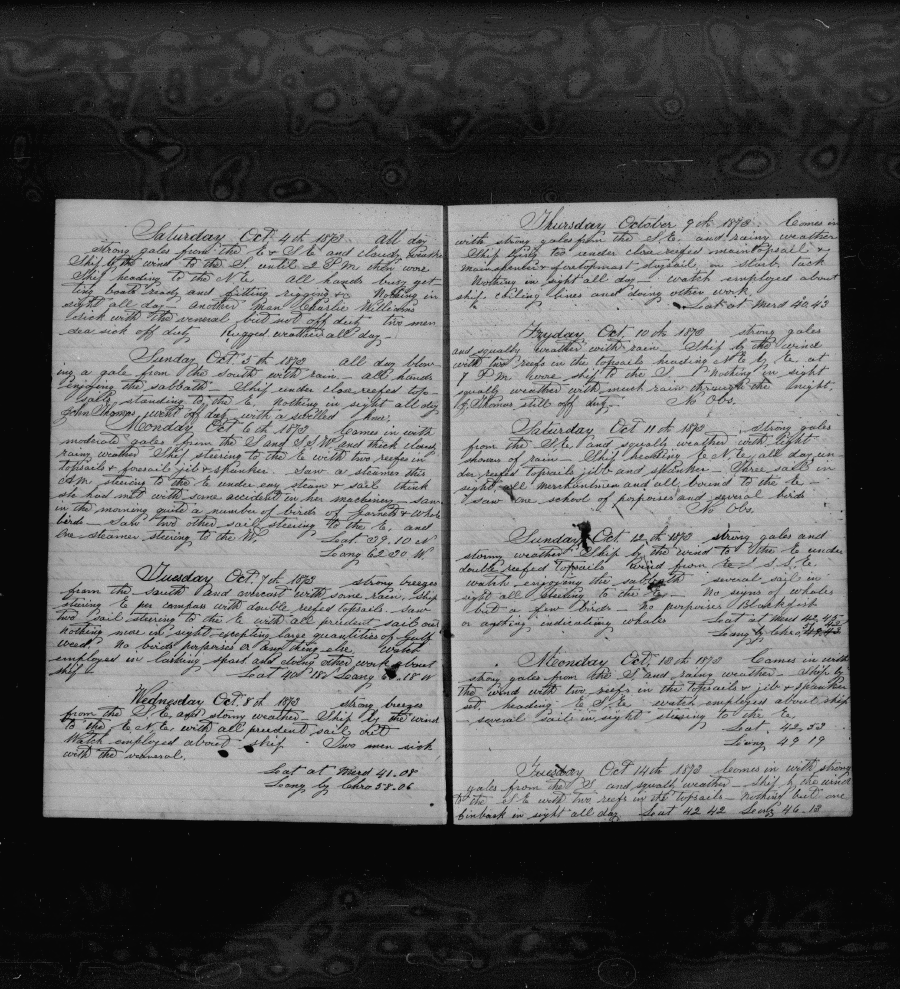 Saturday Oct 4th 1873 all day
strong gales from the E & S E and cloudy weather
Ship by the wind to the S until 2 P.M. then wore
Ship heading to the N.E. All hands busy get-
ting boats ready and fitting rigging &c Nothing in
sight all day another man Charlie Williams
sick with the veneral but not off duty two men
sea sick off duty Rugged weather all day
Sunday Oct 5th 1873 All day blow-
ing a gale from the South with rain all hands
enjoying the sabbath Ship under close reefed top-
sails standing to the E. Nothing in sight all day
John Thomas went off duty with a swelled knee
Monday Oct 6th 1873 Comes in with
moderate gales from the S and S S W and thick cloudy
rainy weather Ship steering to the E with two reefs in
topsails & foresail jib & spanker Saw a steamer this
A.M. steering to the E under easy steam & sail think
she had met with some accident in her machinery saw
in the morning quite a number of birds of Garnets & Whale
birds Saw two other sail steering to the E, and
one steamer steering to the W. Lat 39.10 N
Long 62.30 W
Tuesday Oct. 7th 1873 strong breezes
from the south and overcast with some rain, ship
steering E per compass with double reefed topsails. Saw
two sail steering to the E with all prudent sail out
nothing more in sight excepting large quantities of Gulf
weed. No birds porpoises or any thing else. Watch
employed in lashing spars and doing other work about
ship Lat 40° 18' Long 18 W
Wednesday Oct. 8th 1873 strong breezes
from the S.E. and stormy weather Ship by the wind
to the E.N.E. with all prudent sail set
Watch employed about ship Two men sick
with the veneral.
Lat at Merd 41.08
Long by Chro 58.06
Thursday October 9th 1873 Comes in
with strong gales from the S.E. and rainy weather
Ship lying too under close reefed maintopsail &
mainspencer & foretopmast staysail on starb tack
Nothing in sight all day watch employed about
ship coiling lines and doing other work
Lat at Merd 40.43
Fryday Oct 10th 1873 strong gales
and squally weather with rain Ship by the wind
with two reefs in the topsails heading N E by E. at
7 P.M. wore ship to the S Nothing in sight
squally weather with much rain through the night,
J. Thomas still off duty No Obs.
Saturday Oct 11th 1873 Strong gales
from the S.E. and squally weather with light
showers of rain Ship heading E N E all day un-
der reefed topsails jibb and spanker Three sail in
sight all merchantmen and all bound to the E
Saw one school of porpoises and several birds
No Obs.
Sunday Oct 12th 1873 strong gales and
stormy weather Ship by the wind to the E under
double reefed topsails wind from S.S.E.
watch enjoying the sabbath several sail in
sight all steering to the E No signs of whales
but a few birds No porpoises Blackfish
or anything indicating whales Lat at Merd 42.42
Long by Chro
Monday Oct, 13th 1873 Comes in with
strong gales from the S and rainy weather Ship by
the wind with two reefs in the topsails & jib & spanker
set heading E.S.E. watch employed about ship
several sails in sight steering to the E,
Lat. 42.53
Long 49 19
Tuesday Oct 14th 1873 Comes in with strong
gales from the S and squally weather Ship by the wind
to the S.E. with two reefs in the topsails Nothing but one
finback in sight all day Lat 42 42 Long 46.13